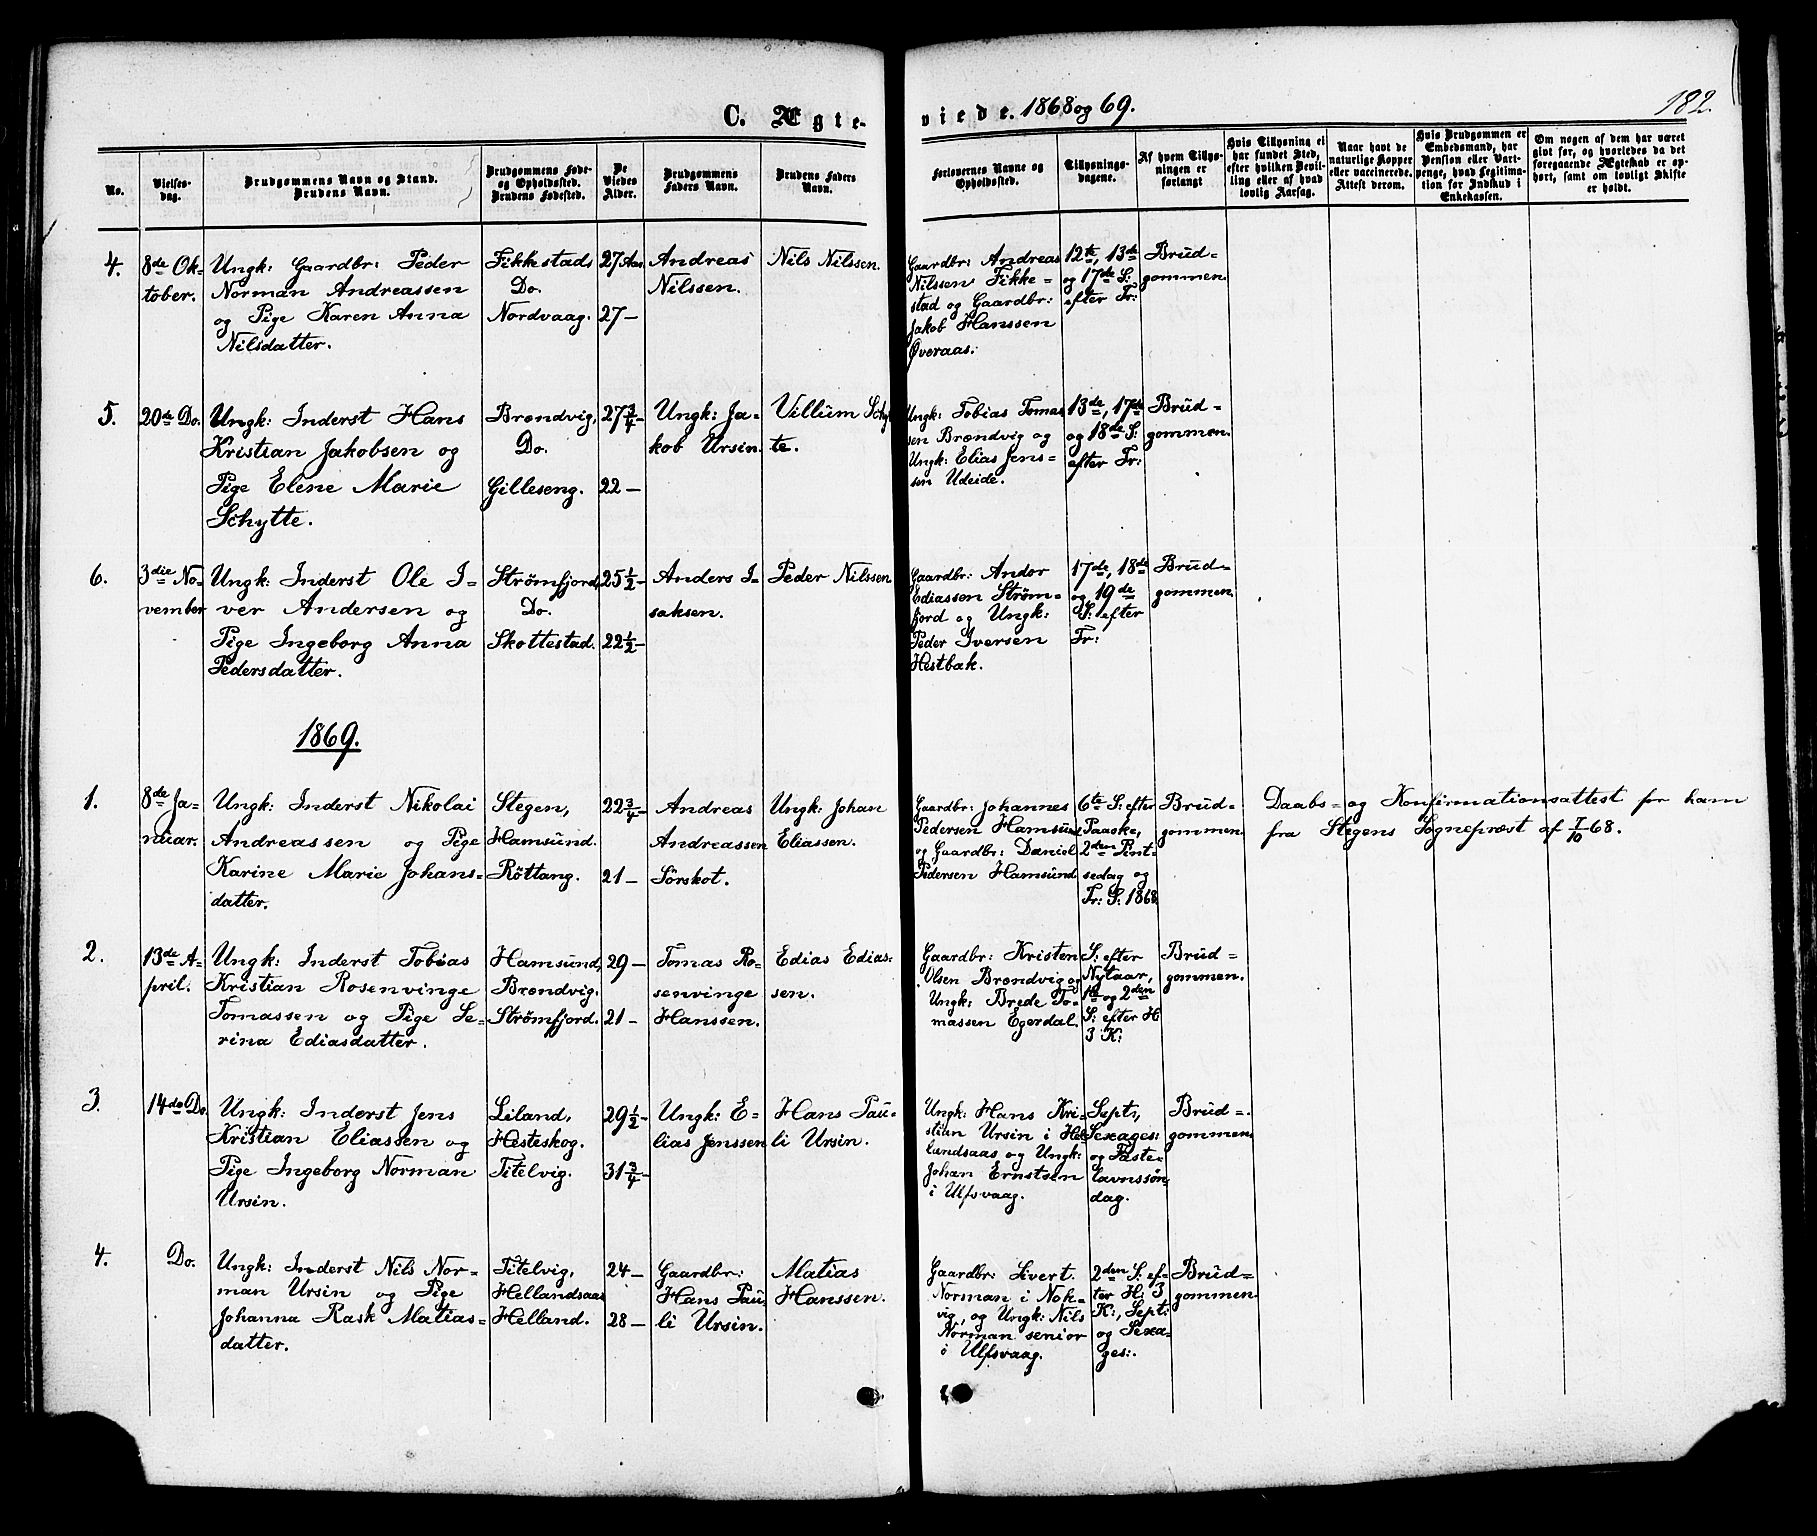 C. Ægteviede. 1868 og 69.
182.
No.
Vielsesdag.
Brudgommens Navn og Stand.
Brudens Navn.
Brudgommens Føde-
og Opholdssted.
Brudens Fødested.
De
Viedes
Alder.
Brudgommens
Faders Navn.
Brudens Faders
Navn.
Forlovernes Navne og
Opholdssted.
Tillysnings-
dagene.
Af hvem Tillys-
ningen er
forlangt
Hvis Tillysning ei
har fundet Sted,
efter hvilken Bevil-
ling eller af hvad
lovlig Aarsag.
Naar havt de
naturlige Kopper
eller vaccinerede.
Attest derom.
Hvis Brudgommen er
Embedsmand, har
Pension eller Vart-
penge, hvad Legitima-
tion for Indskud i
Enkekassen.
Om nogen af dem har været
givt før, og hvorledes da det
foregaaende Ægteskab er op-
hørt, samt om lovligt Skifte
er holdt.
4.
8de Ok-
tober.
Ungk: Gaardbr: Peder
Norman Andreassen
og Pige Karen Anna
Nilsdatter.
Fikkestad
Do.
Nordvaag.
27 Aar
27 –
Andreas
Nilssen.
Nils Nilssen.
Gaardbr: Andreas
Nilssen Fikke-
stad og Gaardbr:
Jakob Hanssen
Øveraas.
12te, 13de
og 17de S:
efter Tr:
Brud-
gommen.
5.
20de Do.
Ungk: Inderst Hans
Kristian Jakobsen og
Pige Elene Marie
Schytte.
Brændvig,
Do.
Gilleseng.
27 3/4 –
22 –
Ungk: Ja-
kob Ursin.
Villum Schyt-
te.
Ungk: Tobias Tomas-
sen Brændvig og
Ungk: Elias Jens-
sen Udeide.
13de, 17de
og 18de S:
efter Tr:
Brud-
gommen.
6.
3die No-
vember
Ungk: Inderst Ole I-
ver Andersen og
Pige Ingeborg Anna
Pedersdatter.
Strømfjord,
Do.
Skottestad.
25 1/2 –
22 1/2 –
Anders I-
saksen.
Peder Nilssen
Gaardbr: Andor
Ediassen Strøm-
fjord og Ungk:
Peder Iversen
Hestbak.
17de, 18de
og 19de
S: efter
Tr:
Brud-
gommen.
1869.
1.
8de Ja-
nuar.
Ungk: Inderst Nikolai
Andreassen og Pige
Karine Marie Johans-
datter.
Stegen,
Hamsund.
Röttang.
22 3/4 –
21 –
Andreas
Andreassen
Sörskot.
Ungk: Johan
Eliassen.
Gaardbr: Johannes
Pedersen Hamsund
og Gaardbr: Daniel
Pedersen Hamsund
6te S: efter
Paaske,
2den Pint-
sedag og
Tr: S: 1868
Brud-
gommen.
Daabs- og Konfirmationsattest for ham
fra Stegens Sognepræst af 7/10 68.
2.
13de A-
pril.
Ungk: Inderst Tobias
Kristian Rosenvinge
Tomassen og Pige Se-
rina Ediasdatter.
Hamsund,
Brændvig.
Strømfjord.
29 –
21 –
Tomas Ro-
senvinge
Hanssen.
Edias Edias-
sen.
Gaardbr: Kristen
Olsen Brændvig og
Ungk: Brede To-
massen Egerdal.
S: efter
Nytaar,
1te og 2den
S: efter H
3 K:
Brud-
gommen.
3.
14de Do.
Ungk: Inderst Jens
Kristian Eliassen og
Pige Ingeborg Norman
Ursin.
Leland,
Hesteskog.
Titelvig.
29 1/2 –
31 3/4 –
Ungk: E-
lias Jenssen
Hans Pau-
li Ursin.
Ungk: Hans Kri-
stian Ursin i Hel-
landsaas og Ungk:
Johan Ernstsen
i Ulfsvaag.
Sept,
Sexages:
og Faste-
lavnssøn-
dag.
Brud-
gommen.
4.
Do.
Ungk: Inderst Nils Nor-
man Ursin og Pige
Johanna Rask Matias-
datter.
Titelvig,
Hellandsaas
Helland.
24 –
28 –
Gaardbr:
Hans Pau
li Ursin.
Matias
Hanssen.
Gaardbr: Sivert.
Norman i Nok-
vig, og Ungk: Nils
Norman senior
i Ulfsvaag.
2den S: ef-
ter H: 3
K:, Sept:
og Sexa-
ges:.
Brud-
gommen